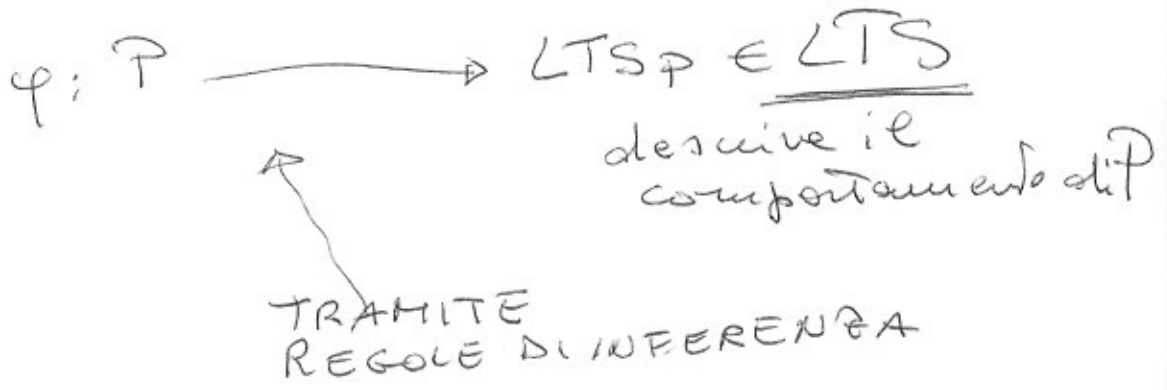 φ: P → LTSP ∈ LTS
descrive il
comportamento di P
TRAMITE
REGOLE DI INFERENZA